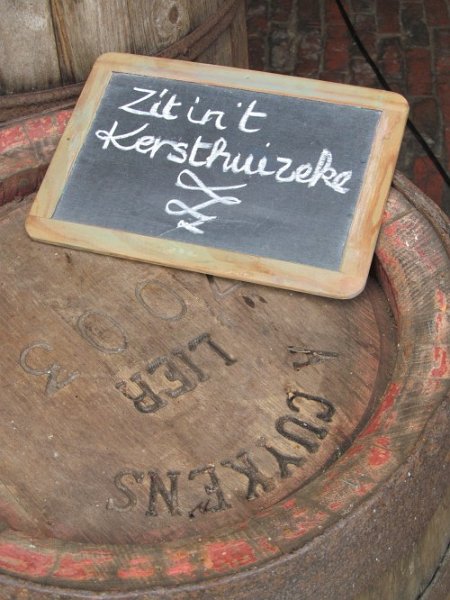 Zit in't
Kersthuizeke
300
LIER
A CUYKENS